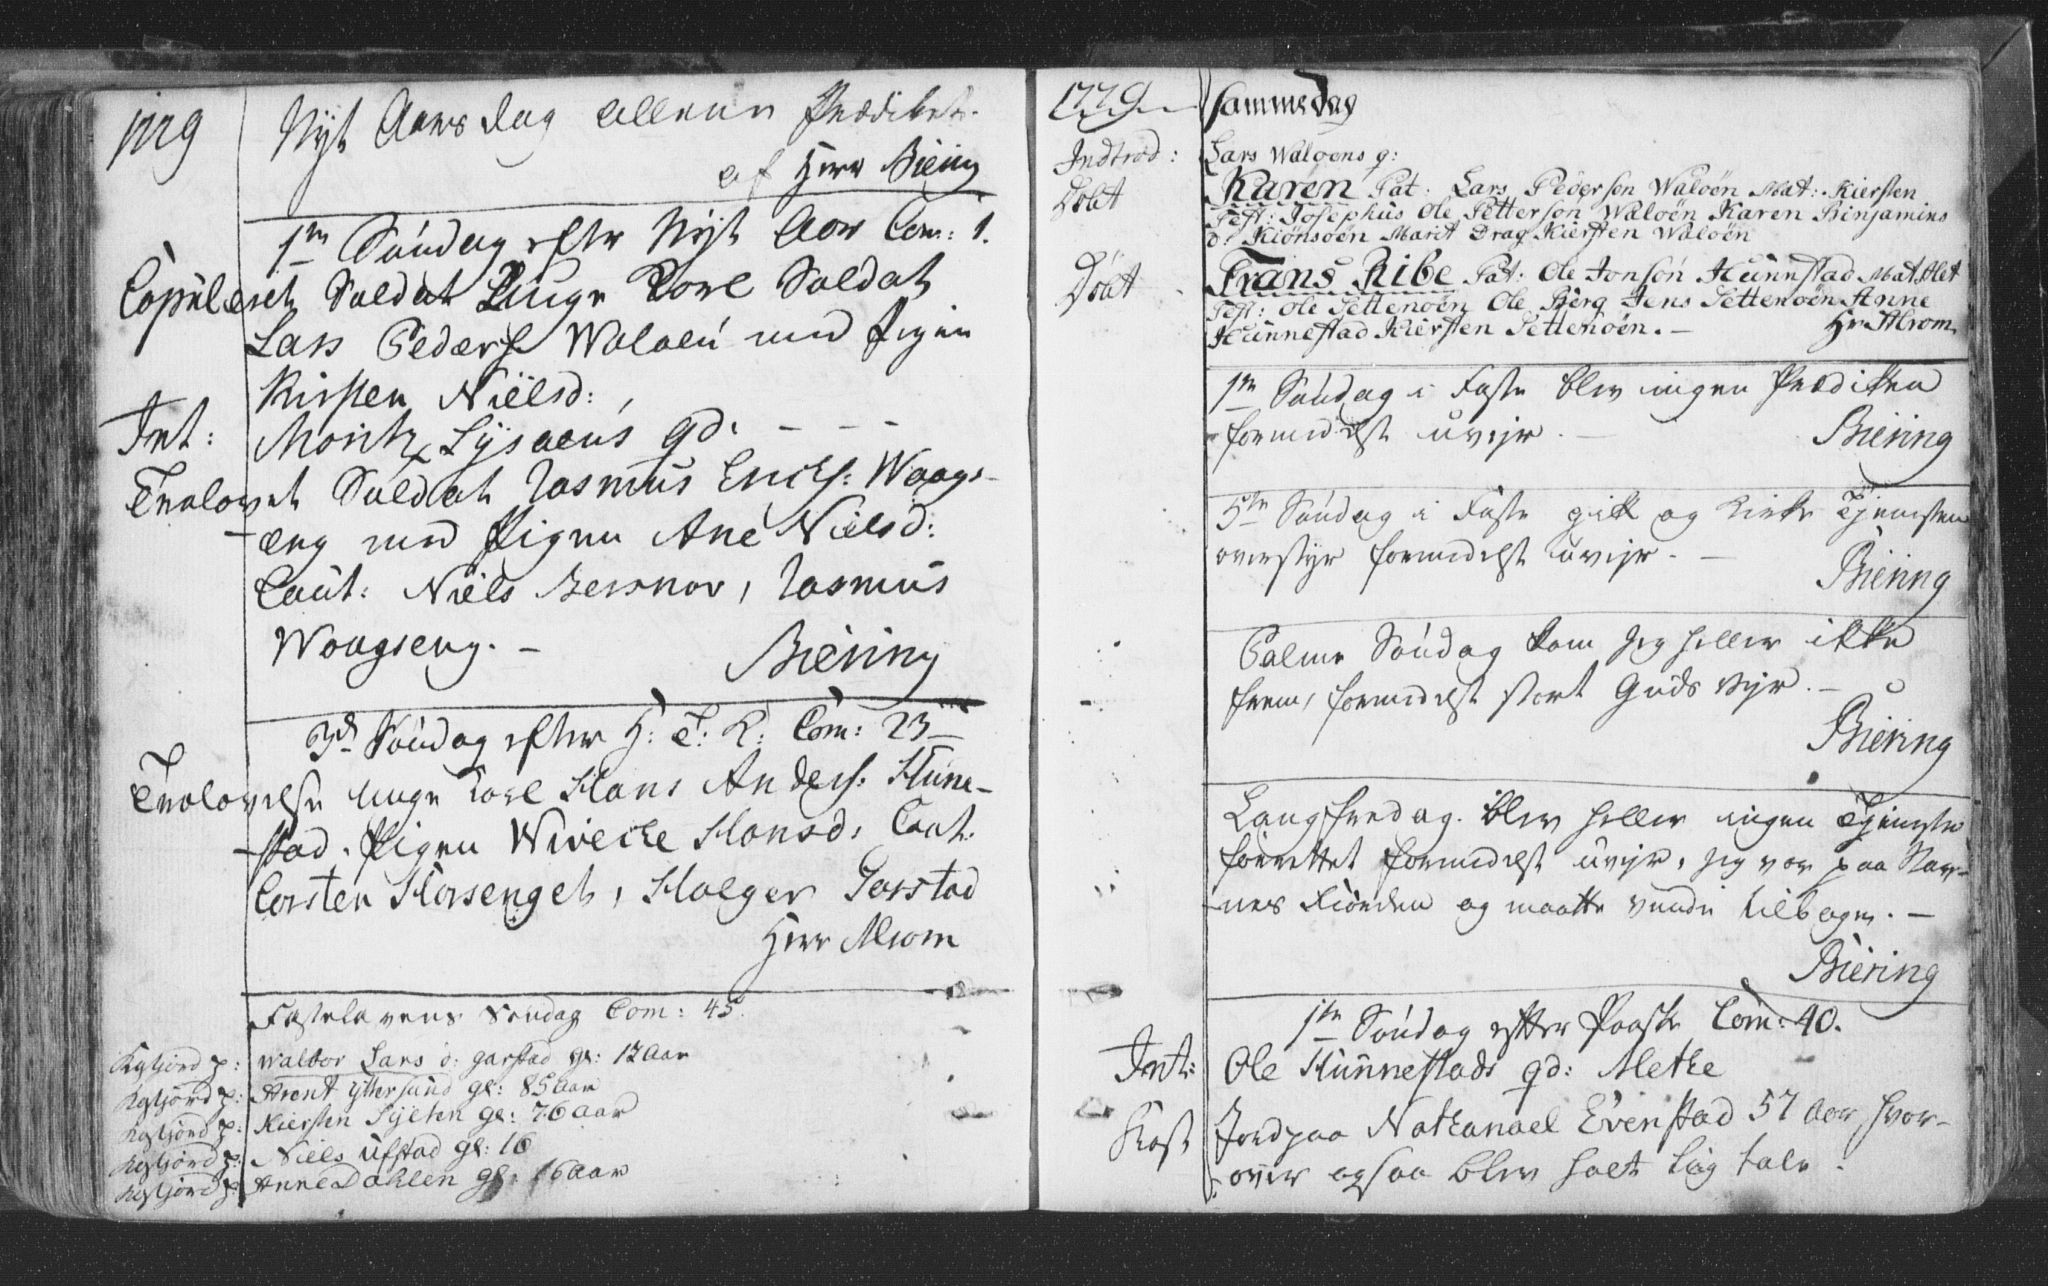 1779
Nyt Aars dag allene Prædiket
af Herr Biering
1te Søndag efter Nyt Aar Com: 1.
Copuleret Soldat Unge Karl Soldat
Lars Peders: Waloen med Pigen
Kirsten Nielsd:
Int: Moritz Lysaens qd. - - -
Trolovet Soldat Rasmus Erichs: Waags-
-æng med Pigen Ane Nielsd:
Caut: Niels Bersnor, Rasmus
Waagseng. -
Biering
3de Søndag efter H: T: K: Com: 23
Trolovelse Unge Karl Hans Anders: Hune-
-stad, Pigen Wiveche Hansd: Caut:
Torsten Horsenget, Holger Jarstad
Herr Alrom
Fastelavens Søndag Com: 45.
Kastjord p: Walbor Lars d: garstad gl: 12 Aar
Kastjord p: Arent Yttersund gl: 85 Aar
Kastjord p: Kiersten gl: 76 aar
Kastjord p: Niels Ufstad gl: 16
Kastjord p: Anne Dahlen gl: 16 Aar
1779 Samme dag
Indtrod: Lars Waloens q:
Døbt Karen Pat. Lars Pederson Waloen Mat: Kiersten
Test: Josephus Ole Petterson Waloen Karen Benjamins
d: Kiønsøen Marit Drag Kiersten Waloen
Døbt Frans Ribe Pat. Ole Jonson Hunnestad Mat. Alet
Test: Ole Settenøen Ole Berg Jens Settenøen Anne
Hunnestad Kiersten Settenøen. - Hr. Alrom
1te Søndag i Faste blev ingen Prædiken
formedelst uvejr. - Biering
5te Søndag i Faste gik og Kirke Tjenesten
overstyr formedelst uvejr. - Biering
Palme Søndag kom jeg heller ikke
frem, formedelst stort Guds Vejr. -
Biering
Langfredag blev heller ingen Tjeneste
forrettet formedelst uvejr, jeg var paa Nav-
-nes Fiorden og maatte vende tilbage. -
Biering
1te Søndag efter Paaske Com: 40.
Int: Ole Hunnestads qd: Methe
Kast Jordpaa Nathanael Evenstad 57 Aar, hvor-
-over ogsaa blev holt Liig tale.